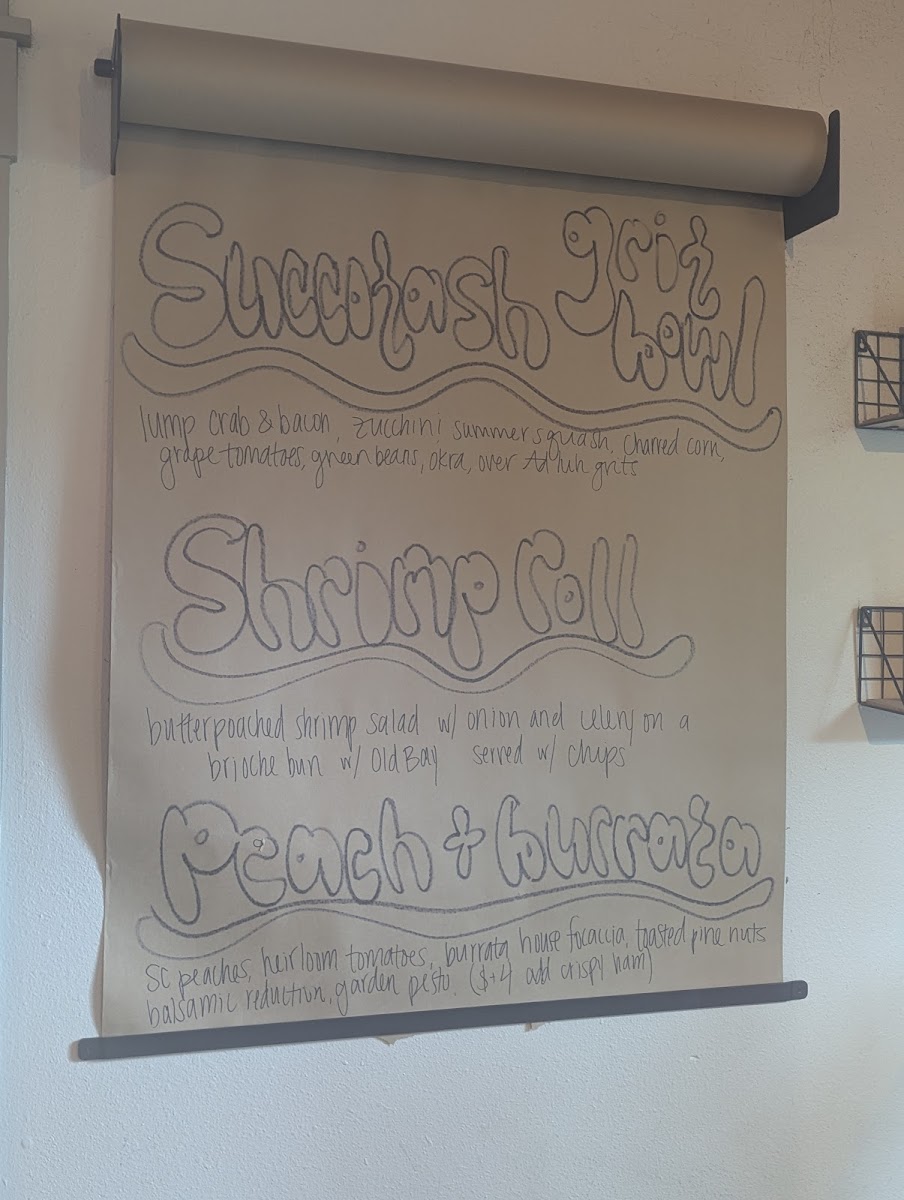 Succotash grit bowl
lump crab & bacon, zucchini, summer squash, charred corn,
grape tomatoes, green beans, okra, over Adluh grits
Shrimp roll
butter poached shrimp salad w/ onion and celery on a
brioche bun w/ Old Bay served w/ chips
Peach + burrata
SC peaches, heirloom tomatoes, burrata, house focaccia, toasted pine nuts
balsamic reduction, garden pesto. ($+4 add crispy ham)